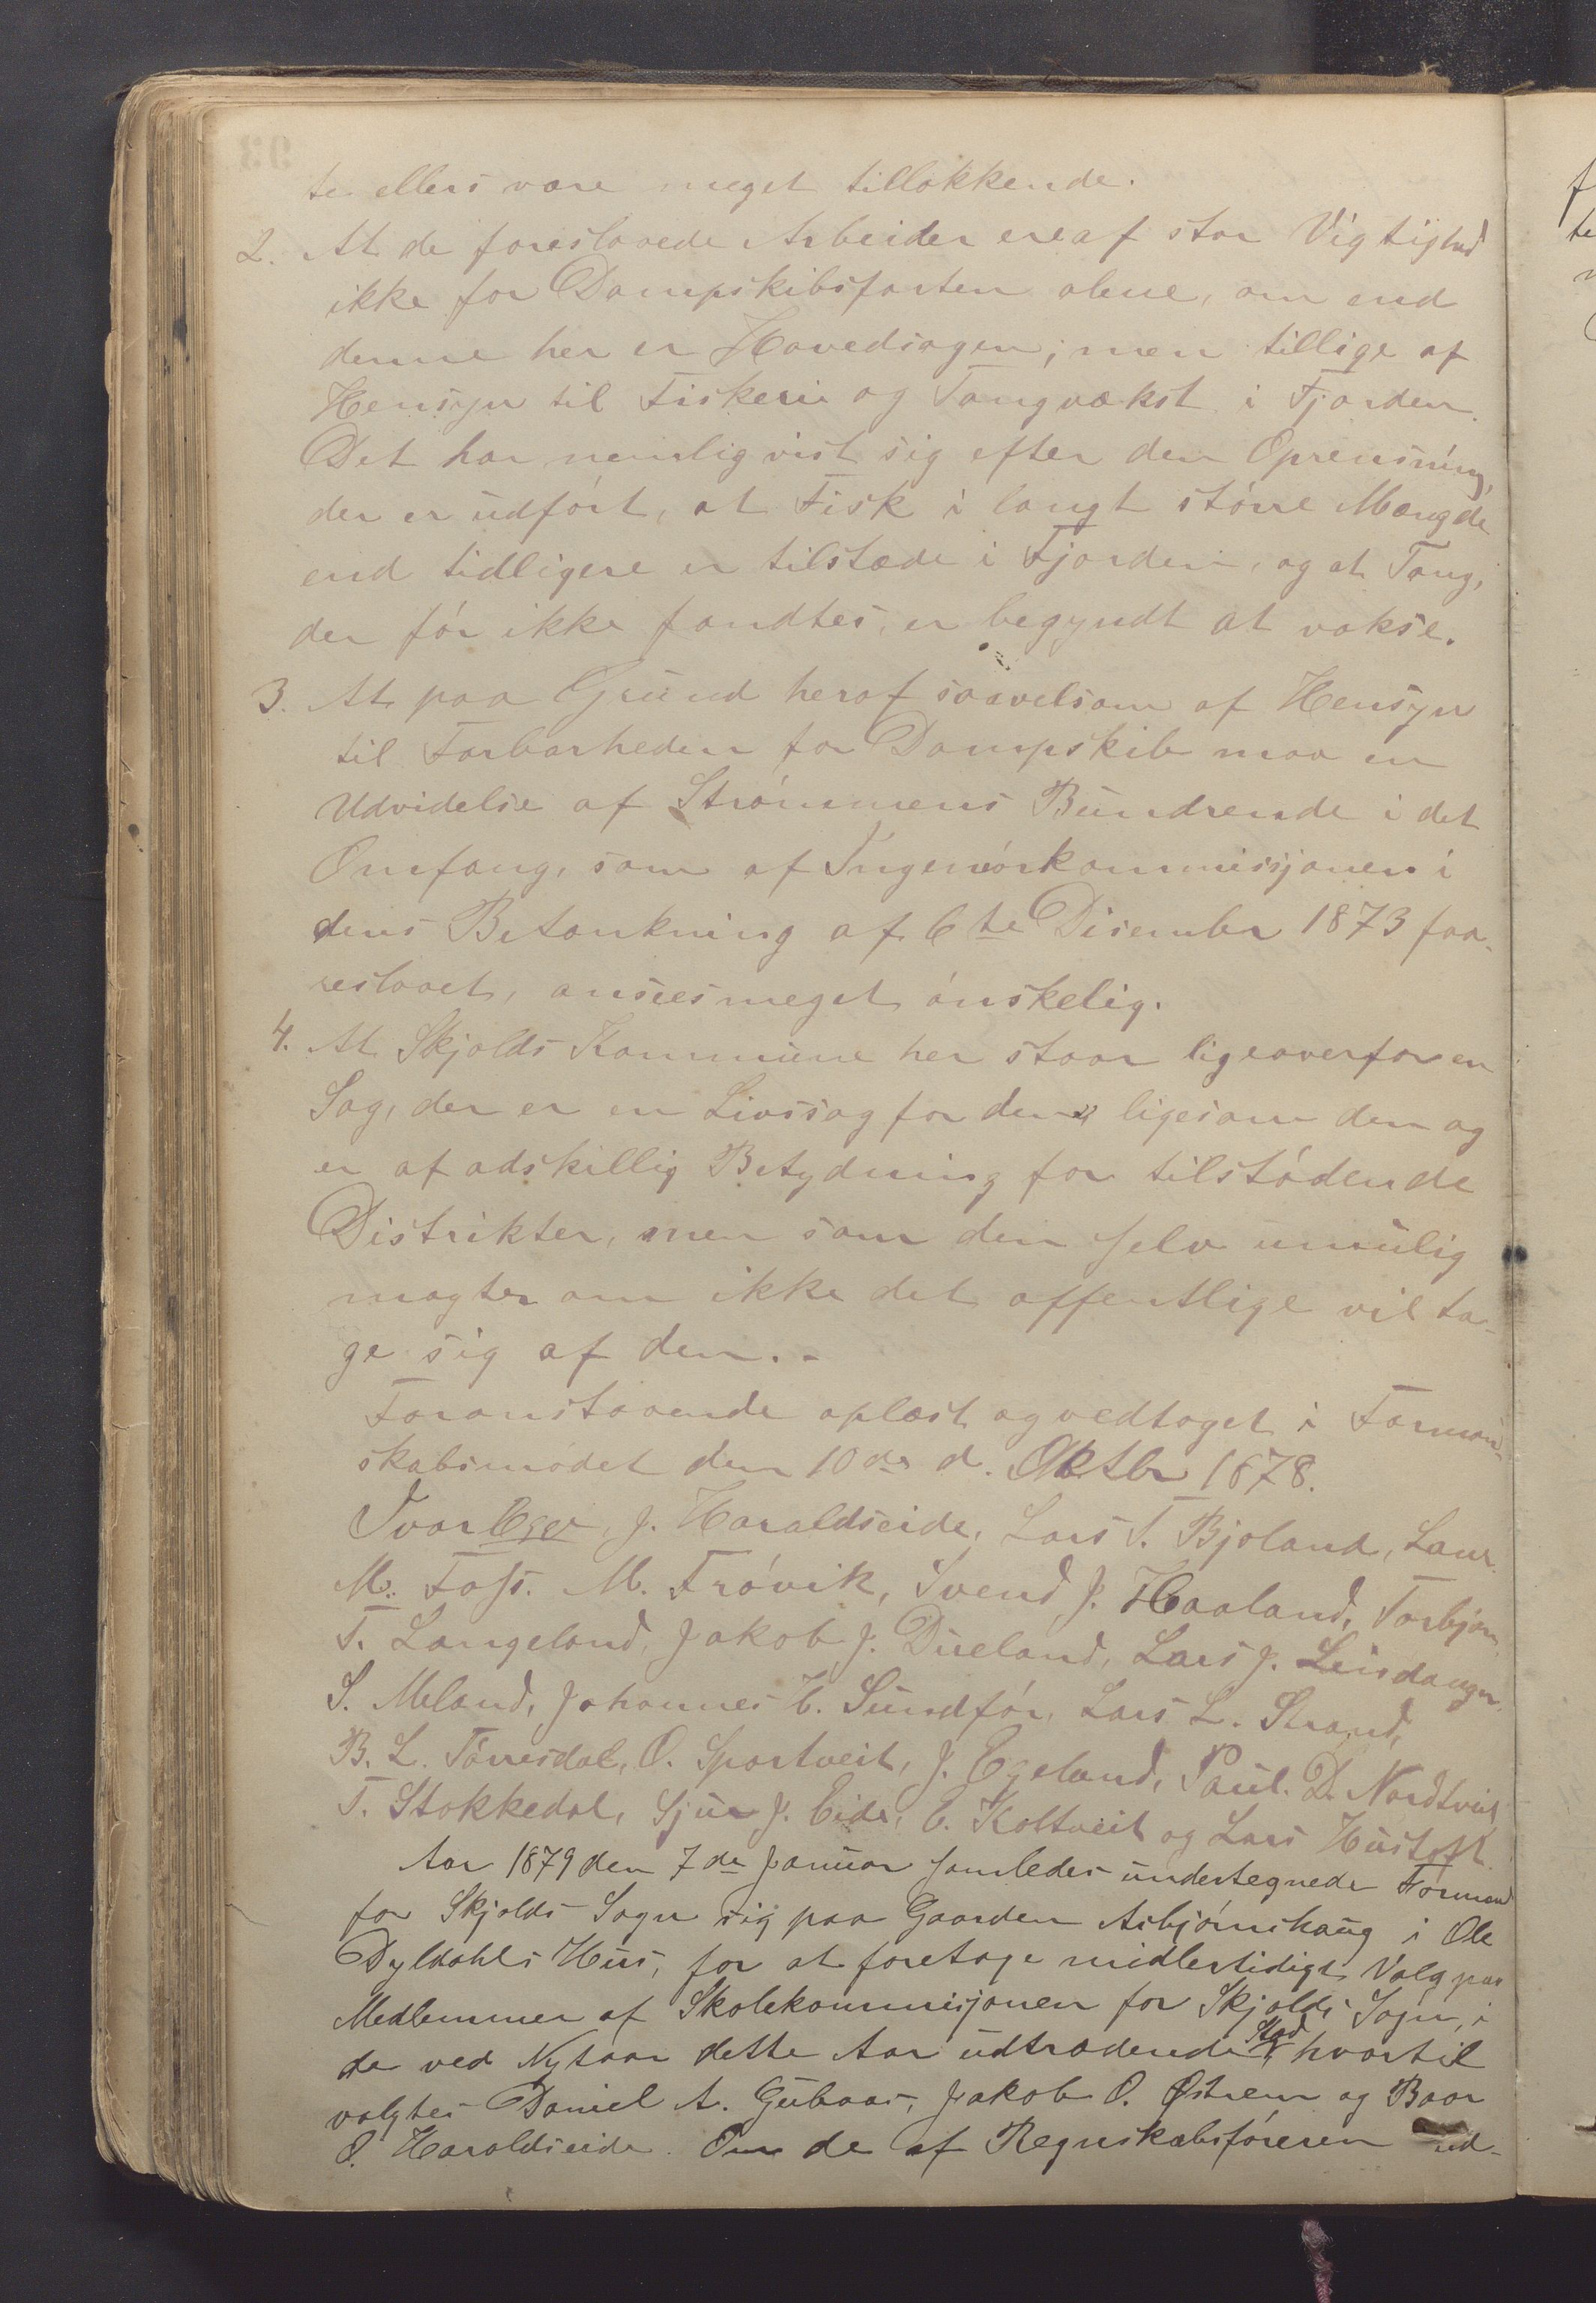 te ellers være meget tillokkende.
2. At de foreslaaede Arbeider ere af stor Vigtighed
ikke for Dampskibsfarten alene, om end
denne her er Hovedsagen; men tillige af
Hensyn til Fiskeri og Tangvækst i Fjorden.
Det har nemlig vist sig efter den Oprensning,
der er udført, at Fisk i langt større Mængde
end tidligere er tilstæde i Fjorden, og at Tang,
der før ikke fandtes, er begyndt at vokse.
3. At paa Grund heraf saavelsom af Hensyn
til Farbarheden for Dampskib maa en
Udvidelse af Strømmens Bundrende i det
Omfang, som af Ingeniørkommissjonen i
dens Betænkning af 6te Disember 1873 faa-
reslaaet, ansees meget ønskelig.
4. At Skjolds Kommune her staar ligeoverfor en
Sag, der er en Livssag for den, ligesom den og
er af adskillig Betydning for tilstødende
Distrikter, men som den selv umulig
magter om ikke det offentlige vil ta-
ge sig af den. -
Foranstaaende oplæst og vedtaget i Forman-
skabsmødet den 10de d. Oktbr 1878.
Ivar Egge, J. Haraldseide, Lars T. Bjoland, Laur.
M. Foss. M. Frøvik, Svend J. Haaland, Torbjørn
T. Langeland, Jakob J. Dueland, Lars J. Leisdanger
S. Meland, Johannes E. Sundfør, Lars L. Strand,
B. L. Tørresdal, O. Sportveit, J. Egeland, Paul. D. Nordtveit
T. Stokkedal, Sjur J. Eide, E. Koltveit og Lars Hustoft.
Aar 1879 den 7de Januar samledes undertegnede Formænd
for Skjolds Sogn sig paa Gaarden Asbjørnshaug i Ole
Dyldahls Hus, for at foretage midlertidigt Valg paa
Medlemmer af Skolekommisjonen for Skjolds Sogn, i
de ved Nytaar dette Aar udtrædendes Sted, hvortil
valgtes Daniel A. Gubaas, Jakob O. Østrem og Baar
O. Haraldseide. Om de af Regnskabsføreren ud-